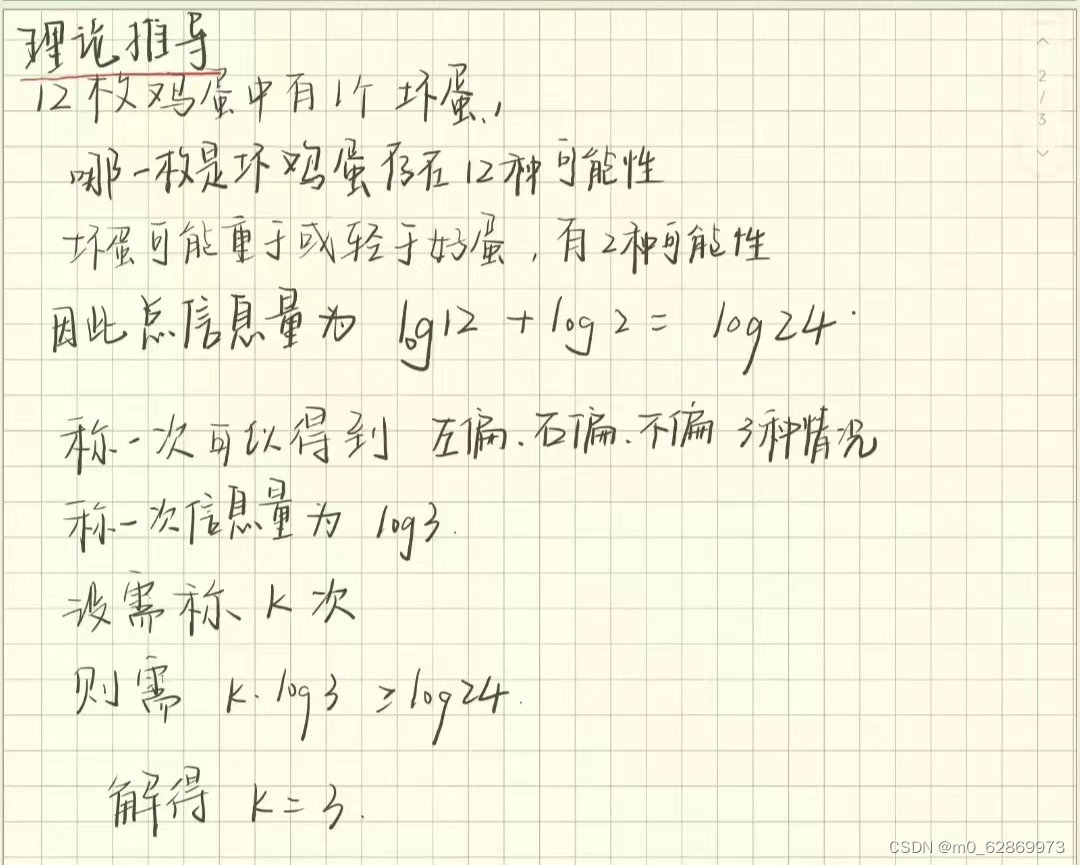 理论推导
12枚鸡蛋中有1个坏蛋，
哪一枚是坏鸡蛋存在12种可能性
坏蛋可能重于或轻于好蛋，有2种可能性
因此总信息量为 log12 + log2 = log24.
称一次可以得到 左偏、右偏、不偏 3种情况
称一次信息量为 log3.
设需称 K 次
则需 K·log3 ≥ log24.
解得 K = 3.
2
/
3
CSDN @m0_62869973